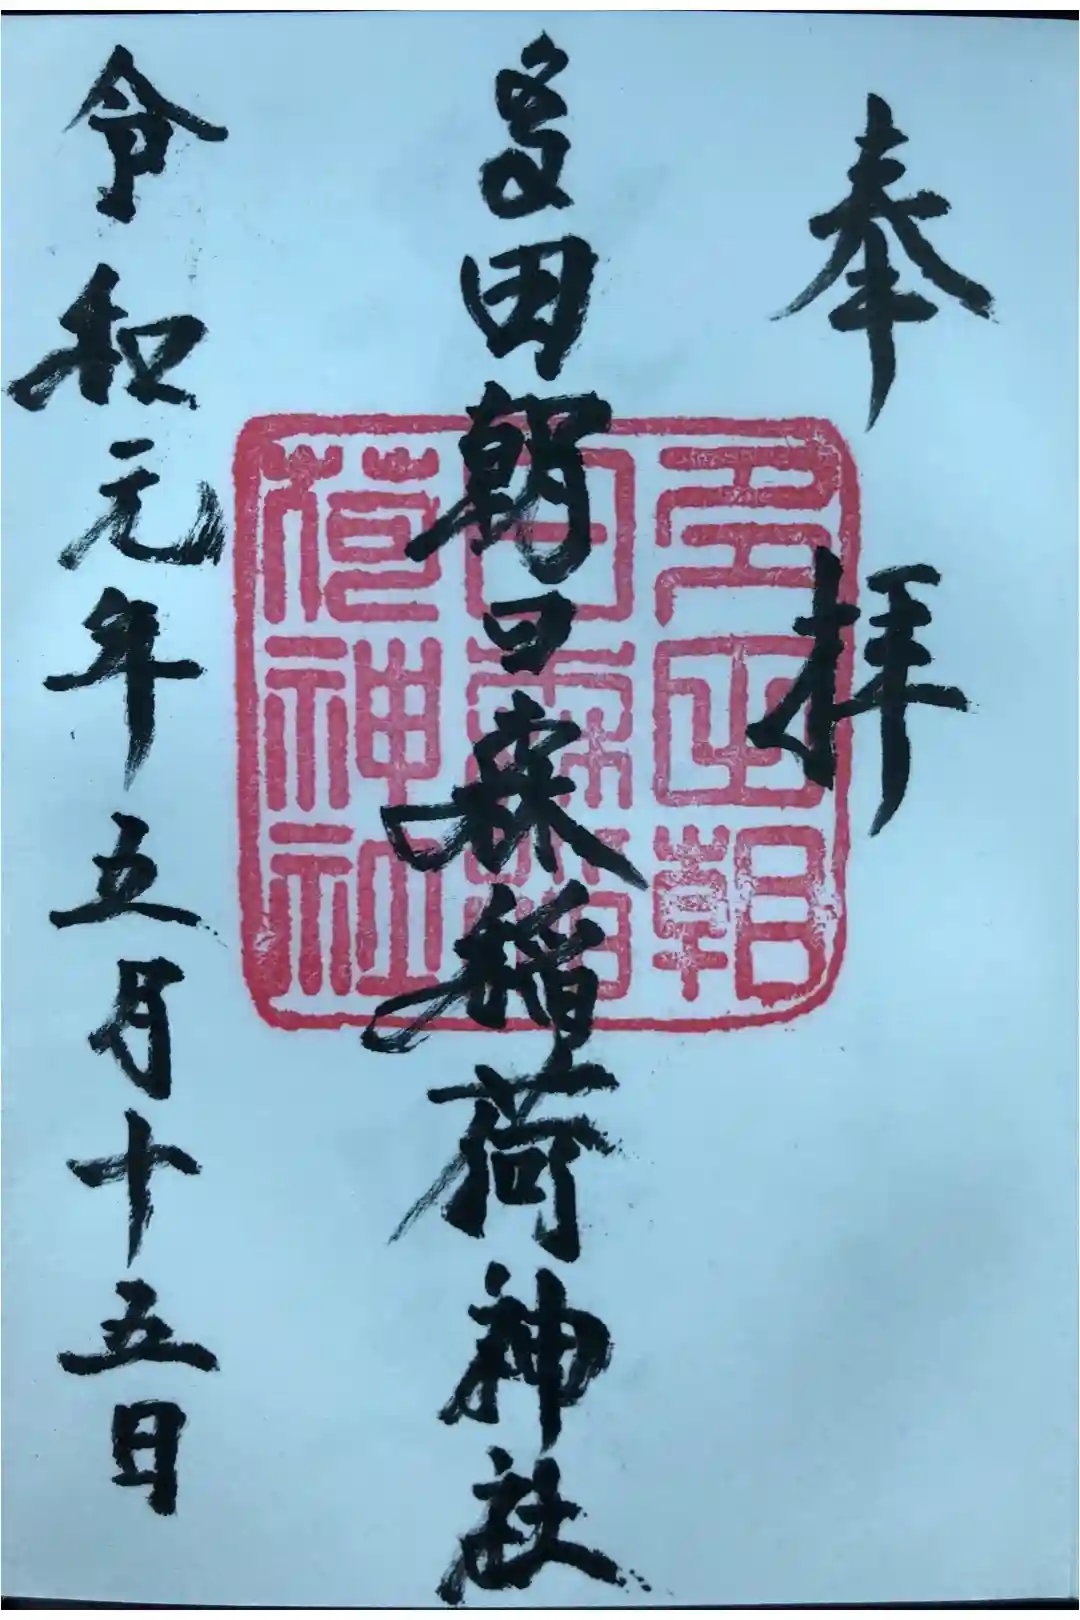 奉拝
多田朝日森稲荷神社
令和元年五月十五日
多田朝
日森稲
荷神社